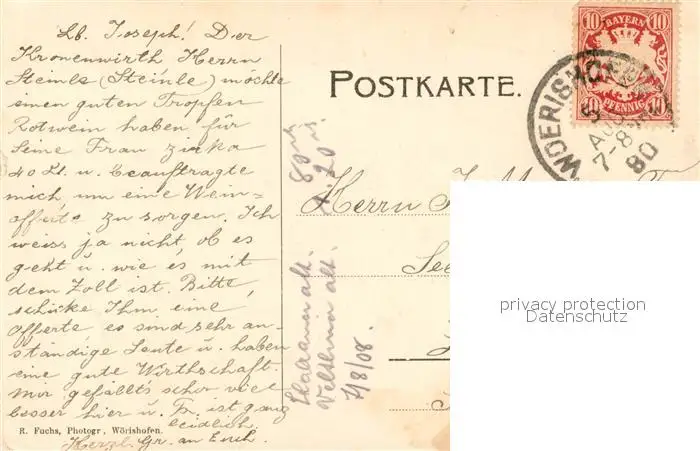 Lb. Joseph! Der
Kronenwirth Herrn
Steinls (Steinle) möchte
einen guten Tropfen
Rotwein haben für
seine Frau zirka
40 Lt. u. beauftragte
mich, um eine Wein-
offerte zu sorgen. Ich
weiss ja nicht ob es
geht u. wie es mit
dem Zoll ist. Bitte,
schicke Ihm eine
Offerte es sind sehr an-
ständige Leute u. haben
eine gute Wirthschaft.
Mir gefällt's schon viel
besser hier u. Fr. ist ganz
leidlich.
R. Fuchs, Photogr., Wörishofen.
Herzl. Gr. an Euch.
80
20
alt.
Veltliner alt.
7/8/08.
POSTKARTE.
Herrn
BAYERN
10 10
PFENNIG
10 10
WOERISHOFEN
AUG
7-8
80
privacy protection
Datenschutz